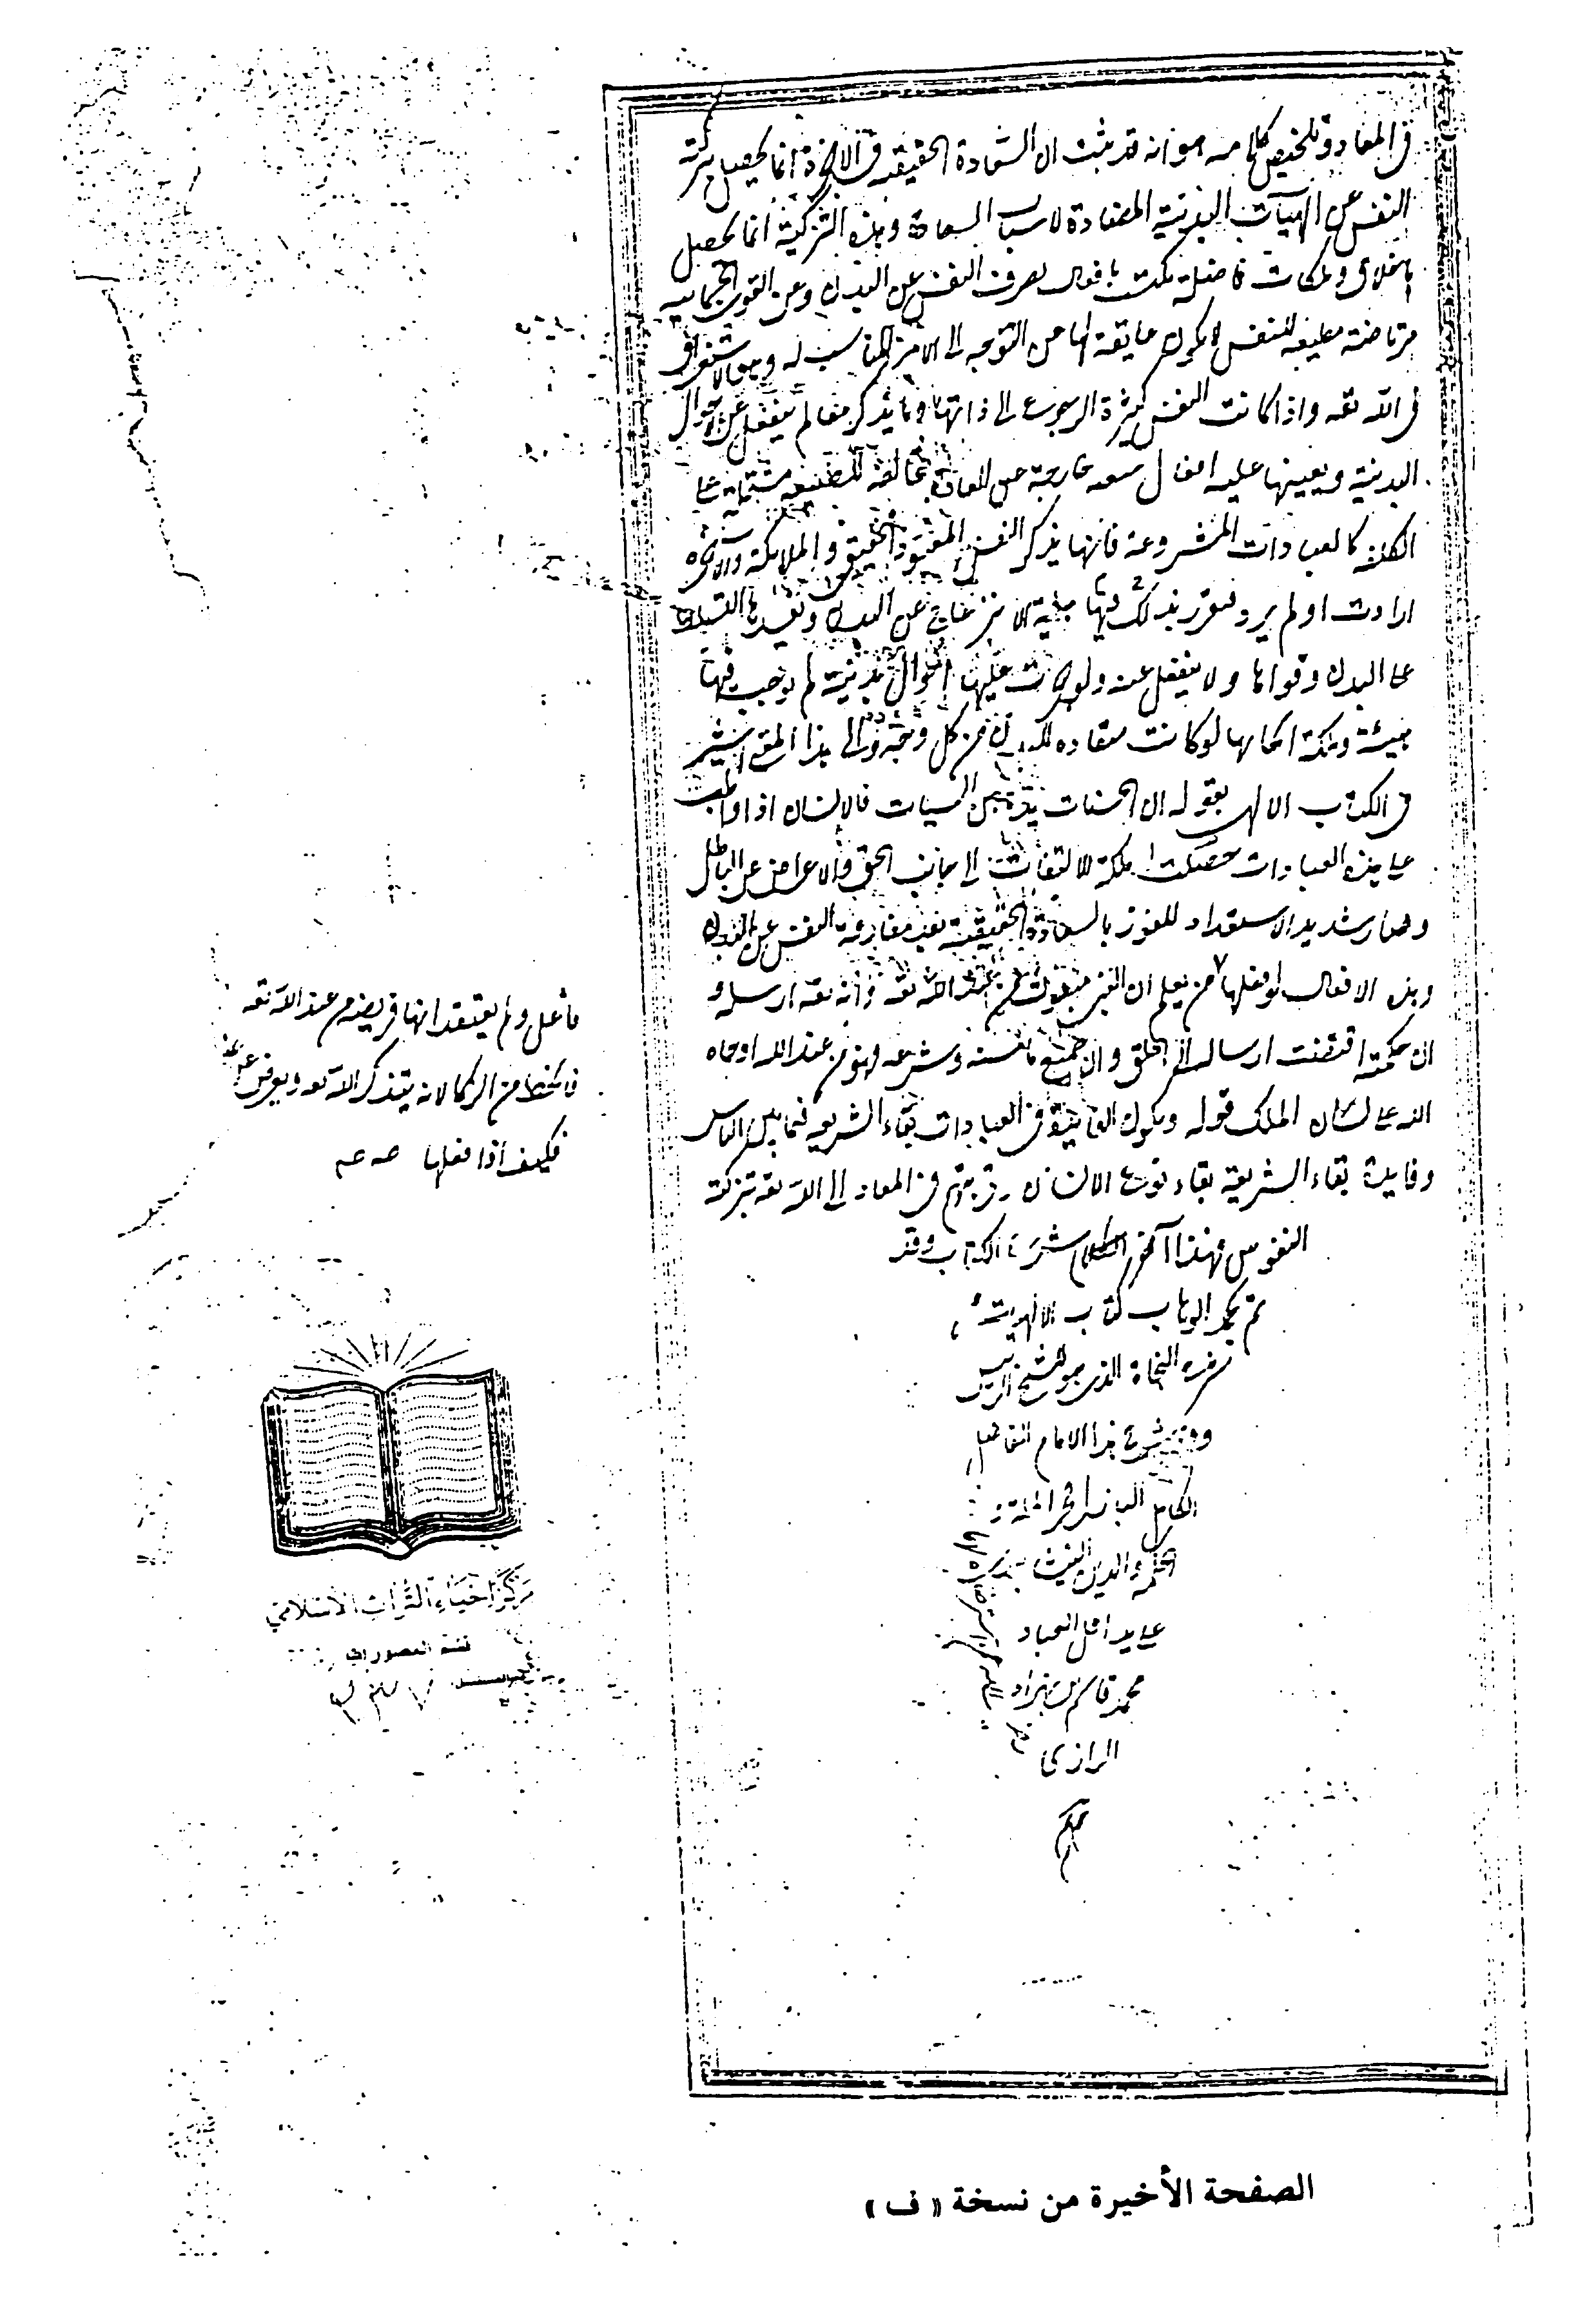 في المعاد وتلخيص كلامه هو انه قد ثبت ان السعادة الحقيقة في الاخرة انما يحصل بتزكية
النفس عن الهيآت البدنية المضادة لاسباب السعادة وهذه التزكية انما تحصل
باخلاق وملكات فاضلة تكتسب بافعال تصرف النفس عن البدن وعن القوى الجسمانية
مرتاضة مطيعة للنفس لا يكون عايقة لها عن التوجه الى الامر المناسب له وهو الاستغراق
في الله تعه واذا كانت النفس كثيرة الرجوع الى ذاتها لم ينفعل عن احوال
البدنية ويعينها عليه افعال متعبه خارجة عن العادة مخالفة للطبيعه مشتملة على
الكلفة كالعبادات المشروعة فانها يذكر النفس المعبود الحقيقي والملايكة والآخرة
ارادت او لم يرد فتقرر بذلك فيها هيئة الانزعاج عن البدن وتفيدها التسلط
على البدن وقواها ولا ينفعل عنه ولو جرت عليها احوال بدنية لم يوجب فيها
هيئة وملكة ايجابها لو كانت منقاده للبدن من كل وجه والى هذا المعنى اشير
في الكتاب الالهي بقوله ان الحسنات يذهبن السيئات فالانسان اذا واظب
على هذه العبادات حصلت ملكة الالتفات الى جانب الحق والاعراض عن الباطل
وصار شديد الاستعداد للفوز بالسعادة الحقيقية بعد مفارقة النفس عن البدن
وهذه الافعال لو فعلها من يعلم ان النبي مبعوث من عند الله تعه وانه تعه ارسله و
ان حكمته اقتضت ارساله الى الخلق وان جميع ما سنه وشرعه فهو من عند الله اوحاه
الله على لسان الملك قوله ويكون الفايدة في العبادات بقاء الشريعه فيما بين الناس
وفايدة بقاء الشريعة بقاء نوع الانسان وقربهم في المعاد الى الله تعه بتزكية
النفوس فهذا آخر الكلام شرح الكتاب وقد
تم بحمد الوهاب كتاب الالهيات
من النجاة الذي هو للشيخ الرييس
وقد شرح هذا الامام الفاضل
الكامل
على يد اقل العباد
محمد قاسم بن بهزاد
الرازي
فاعل ولم يعتقد انها فريضة من عند الله تعه
الزكا لانه يتذكر الله تعه ويعرض عن غيره
فكيف اذا فعلها صح صح
مركز إحياء التراث الإسلامي
قسم المصورات
الصفحة الأخيرة من نسخة « ف »